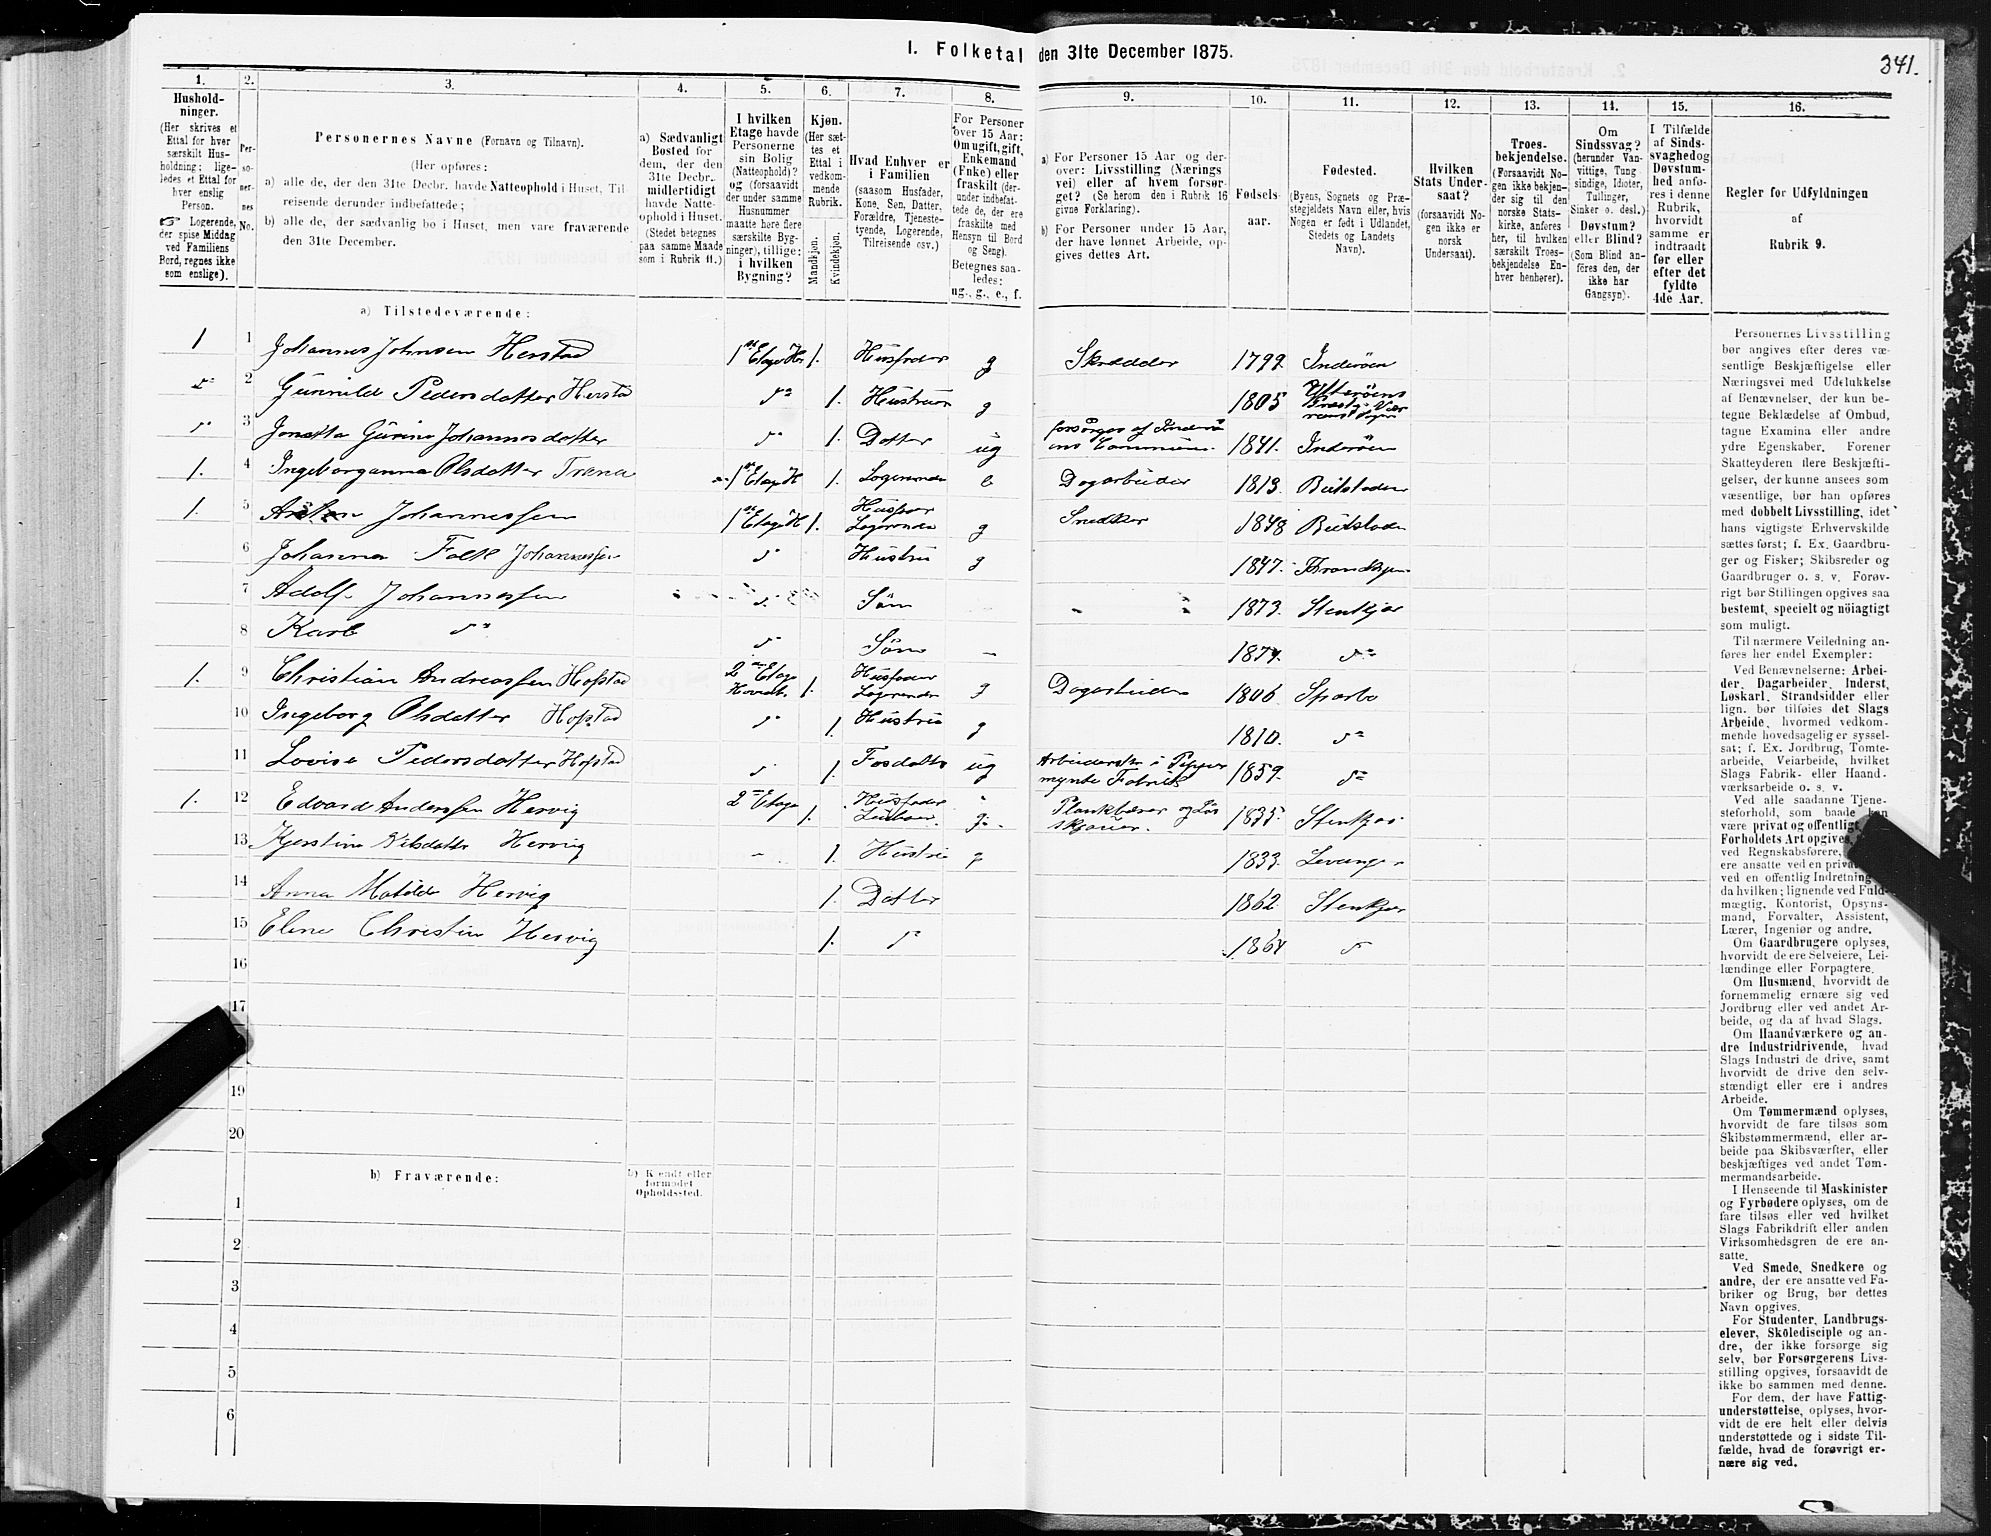 I. Folketal den 31te December 1875.
341.
1.
Hushold-
ninger.
(Her skrives et
Ettal for hver
særskilt Hus-
holdning; lige-
ledes et Ettal for
hver enslig
Person.
☞ Logerende,
der spise Middag
ved Familiens
Bord, regnes ikke
som enslige).
2.
Per-
so-
ner-
nes
No.
3.
Personernes Navne (Fornavn og Tilnavn).
(Her opføres:
a) alle de, der den 31te Decbr. havde Natteophold i Huset, Til-
reisende derunder indbefattede;
b) alle de, der sædvanlig bo i Huset, men vare fraværende
den 31te December.
4.
a) Sædvanligt
Bosted for
dem, der den
31te Decbr.
midlertidigt
havde Natte-
ophold i Huset.
(Stedet betegnes
paa samme Maade
som i Rubrik 11.)
5.
I hvilken
Etage havde
Personerne
sin Bolig
(Natteophold)?
og (forsaavidt
der under samme
Husnummer
maatte høre flere
særskilte Byg-
ninger), tillige:
i hvilken
Bygning?
6.
Kjøn.
(Her sæt-
tes et
Ettal i
vedkom-
mende
Rubrik.
Mandkjøn.
Kvindekjøn.
7.
Hvad Enhver er
i Familien
(saasom Husfader,
Kone, Søn, Datter,
Forældre, Tjeneste-
tyende, Logerende,
Tilreisende osv.)
8.
For Personer
over 15 Aar:
Om ugift, gift,
Enkemand
(Enke) eller
fraskilt (der-
under indbefat-
tede de, der ere
fraskilte med
Hensyn til Bord
og Seng).
Betegnes saa-
ledes:
ug., g., e., f.
9.
a) For Personer 15 Aar og der-
over: Livsstilling (Nærings
vei) eller af hvem forsør-
get? (Se herom den i Rubrik 16
givne Forklaring).
b) For Personer under 15 Aar,
der have lønnet Arbeide, op-
gives dettes Art.
10.
Fødsels-
aar.
11.
Fødested.
(Byens, Sognets og Præ-
stegjeldets Navn eller, hvis
Nogen er født i Udlandet,
Stedets og Landets
Navn).
12.
Hvilken
Stats Under-
saat?
(forsaavidt No-
gen ikke er
norsk
Undersaat).
13.
Troes-
bekjendelse.
(Forsaavidt No-
gen ikke bekjen-
der sig til den
norske Stats-
kirke, anføres
her, til hvilken
særskilt Troes-
bekjendelse En-
hver henhører).
14.
Om
Sindssvag?
(herunder Van-
vittige, Tung
sindige, Idioter,
Tullinger,
Sinker o. desl.)
Døvstum?
eller Blind?
(Som Blind an-
føres den, der
ikke har
Gangsyn).
15.
I Tilfælde
af Sinds-
svaghed og
Døvstum-
hed anfø-
res i denne
Rubrik,
hvorvidt
samme er
indtraadt
før eller
efter det
fyldte
4de Aar.
16.
Regler for Udfyldningen
af
Rubrik 9.
a) Tilstedeværende:
1 1 Johannes Johnsen Herstad 1ste Etage H. 1. Husfader g Skrædder 1799. Inderøen
2 Gunnild Pedersdatter Herstad 1. Hustrue g 1805 Ytterøens
3 Jonetta Gurine Johannesdatter 1. Datter ug forsørges af Inderø
1841. Inderøen
1. 4 Ingeborganna Olsdatter Trana 1ste Etage H 1. Logerende e Dagarbeider 1813. Beitstaden
1. 5 Johannessen 1ste Etage H 1. Husfader
Logerende g Snedker 1848 Beitstaden
6 Johanna Falk Johannessen Hustru g 1847. Trondhjem
7 Adolf Johannessen Søn 1873. Stenkjær
8 Karl Søn 1874.
1. 9 Christian Andreassen Hofstad 2den Etage 1. Husfader
Logerende g Dagarbeider 1806 Sparbo
10 Ingeborg Olsdatter Hofstad 1. Hustrue g 1810.
11 Lovise Pedersdatter Hofstad 1. Fosdatter ug Arbeiderske i Pepper
mynte Fabrik 1859.
1. 12 Edvard Anderssen Hervig 2den Etage 1. Husfader
g. Plankbærer og
1835 Stenkjær
13 Kjerstine Nilsdatter Hervig 1. Hustrue g 1833. Levanger
14 Anna Matilde Hervig 1. Datter 1862. Stenkjær
15 Eline Christine Hervig 1. 1864
16
17
19
20
b) Fraværende:
b) Kjendt eller
formodet
Opholdssted.
1
2
3
4
5
6
Personernes Livsstilling
bør angives efter deres væ-
sentlige Beskjæftigelse eller
Næringsvei med Udelukkelse
af Benævnelser, der kun be-
tegne Beklædelse af Ombud,
tagne Examina eller andre
ydre Egenskaber. Forener
Skatteyderen flere Beskjæfti-
gelser, der kunne ansees som
væsentlige, bør han opføres
med dobbelt Livsstilling, idet
hans vigtigste Erhvervskilde
sættes først; f. Ex. Gaardbru-
ger og Fisker; Skibsreder og
Gaardbruger o. s. v. Forøv-
rigt bør Stillingen opgives saa
bestemt, specielt og nöiagtigt
som muligt.
Til nærmere Veiledning an-
føres her endel Exempler:
Ved Benævnelserne: Arbei-
der, Dagarbeider, Inderst,
Løskarl, Strandsidder eller
lign. bør tilføies det Slags
Arbeide, hvormed vedkom-
mende hovedsagelig er syssel-
sat; f. Ex. Jordbrug, Tomte-
arbeide, Veiarbeide, hvilket
Slags Fabrik- eller Haand-
værksarbeide o. s. v.
Ved alle saadanne Tjene-
steforhold, som baade kan
være privat og offentligt,
Forholdets Art opgives,
ved Regnskabsførere,
ere ansatte ved en privat
ved en offentlig Indretning
da hvilken; lignende ved Fuld-
mægtig, Kontorist, Opsyns-
mand, Forvalter, Assistent,
Lærer, Ingeniør og andre.
Om Gaardbrugere oplyses,
hvorvidt de ere Selveiere, Lei-
lændinge eller Forpagtere.
Om Husmænd, hvorvidt de
fornemmelig ernære sig ved
Jordbrug eller ved andet Ar-
beide, og da af hvad Slags.
Om Haandværkere og an-
dre Industridrivende, hvad
Slags Industri de drive, samt
hvorvidt de drive den selv-
stændigt eller ere i andres
Arbeide.
Om Tømmermænd oplyses,
hvorvidt de fare tilsøs som
Skibstømmermænd, eller ar-
beide paa Skibsværfter, eller
beskjæftiges ved andet Tøm-
mermandsarbeide.
I Henseende til Maskinister
og Fyrbødere oplyses, om de
fare tilsøs eller ved hvilket
Slags Fabrikdrift eller anden
Virksomhedsgren de ere an-
satte.
Ved Smede, Snedkere og
andre, der ere ansatte ved Fa-
briker og Brug, bør dettes
Navn opgives.
For Studenter, Landbrugs-
elever, Skoledisciple og an-
dre, der ikke forsørge sig
selv, bør Forsørgerens Livs-
stilling opgives, forsaavidt de
ikke bo sammen med denne.
For dem, der have Fattig-
understøttelse, oplyses, hvor-
vidt de ere helt eller delvis
understøttede og i sidste Til-
fælde, hvad de forøvrigt er-
nære sig ved.